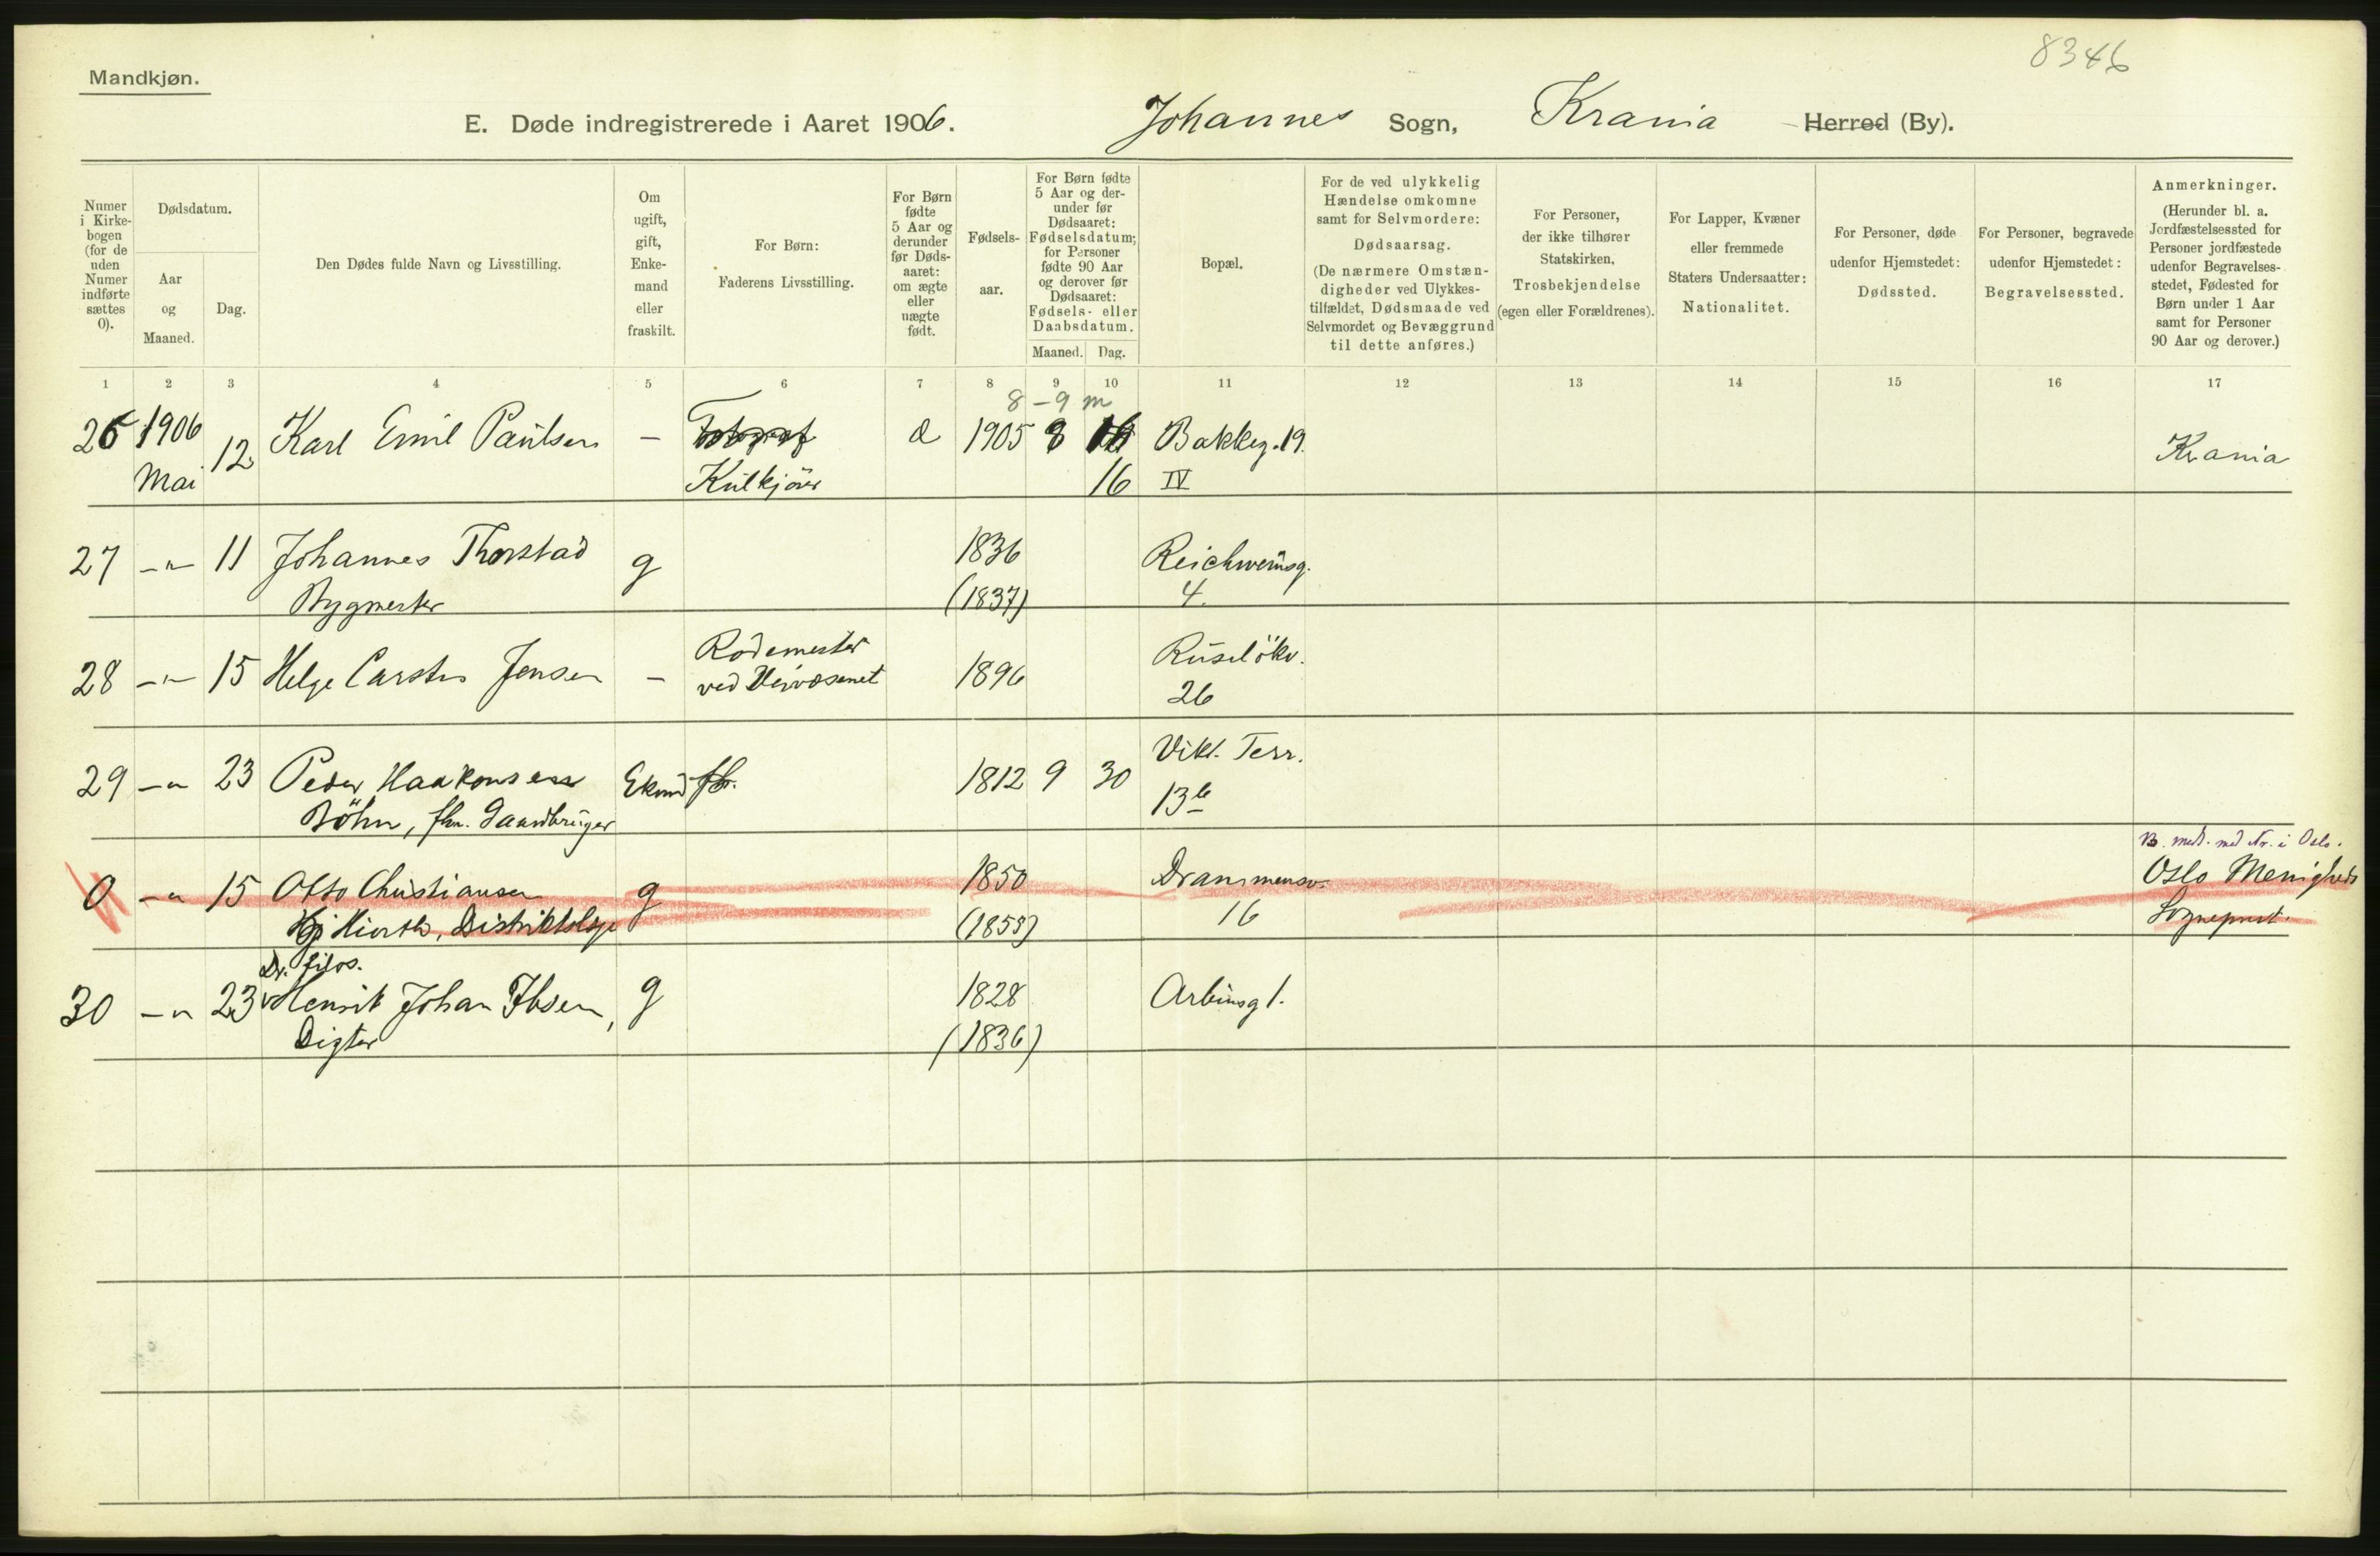 8346
Mandkjøn.
E. Døde indregistrerede i Aaret 1906. Johannes Sogn, Krania Herred (By).
Numer i Kirke-bogen (for de uden Numer indførte sættes 0).
Dødsdatum.
Aar og Maaned.
Dag.
Den Dødes fulde Navn og Livsstilling.
Om ugift, gift, Enke-mand eller fraskilt.
For Børn: Faderens Livsstilling.
For Børn fødte 5 Aar og derunder før Døds-aaret: om ægte eller uægte født.
Fødsels-aar.
For Børn fødte 5 Aar og der-under før Dødsaaret: Fødselsdatum; for Personer fødte 90 Aar og derover før Dødsaaret: Fødsels- eller Daabsdatum.
Maaned. Dag.
Bopæl.
For de ved ulykkelig Hændelse omkomne samt for Selvmordere: Dødsaarsag. (De nærmere Omstæn-digheder ved Ulykkes-tilfældet, Dødsmaade ved Selvmordet og Bevæggrund til dette anføres.)
For Personer, der ikke tilhører Statskirken, Trosbekjendelse (egen eller Forældrenes).
For Lapper, Kvæner eller fremmede Staters Undersaatter: Nationalitet.
For Personer, døde udenfor Hjemstedet: Dødssted.
For Personer, begravede udenfor Hjemstedet: Begravelsessted.
Anmerkninger. (Herunder bl. a. Jordfæstelsessted for Personer jordfæstede udenfor Begravelses-stedet, Fødested for Børn under 1 Aar samt for Personer 90 Aar og derover.)
1 2 3 4 5 6 7 8 9 10 11 12 13 14 15 16 17
8 - 9 m
26 1906 12 Karl Emil Paulsen - Fotograf 1905 8 Bakkeg. 19. Krania
Mai Kulkjörer 16 IV
27 -"- 11 Johannes Thorstad g 1836 Reichweinsg.
Bygmester (1837) 4.
28 -"- 15 Helge Carsten Jensen - Rodemester 1896 Ruselökv.
ved Veivæsenet 26
29 -"- 23 Peder Haakonsen Ekmd 1812 9 30 Vikt. Terr.
Böhn, fhv. Gaardbruger 13b
B. med. med Nr. i Oslo.
0 -"- 15 Otto Christiansen g 1850 Drammensv. Oslo Menigheds
Hiorth, Distriktslæge (1855) 16 Sogneprest.
Dr. filos.
30 -"- 23 Henrik Johan Ibsen, g 1828 Arbinsg 1.
Digter (1836)